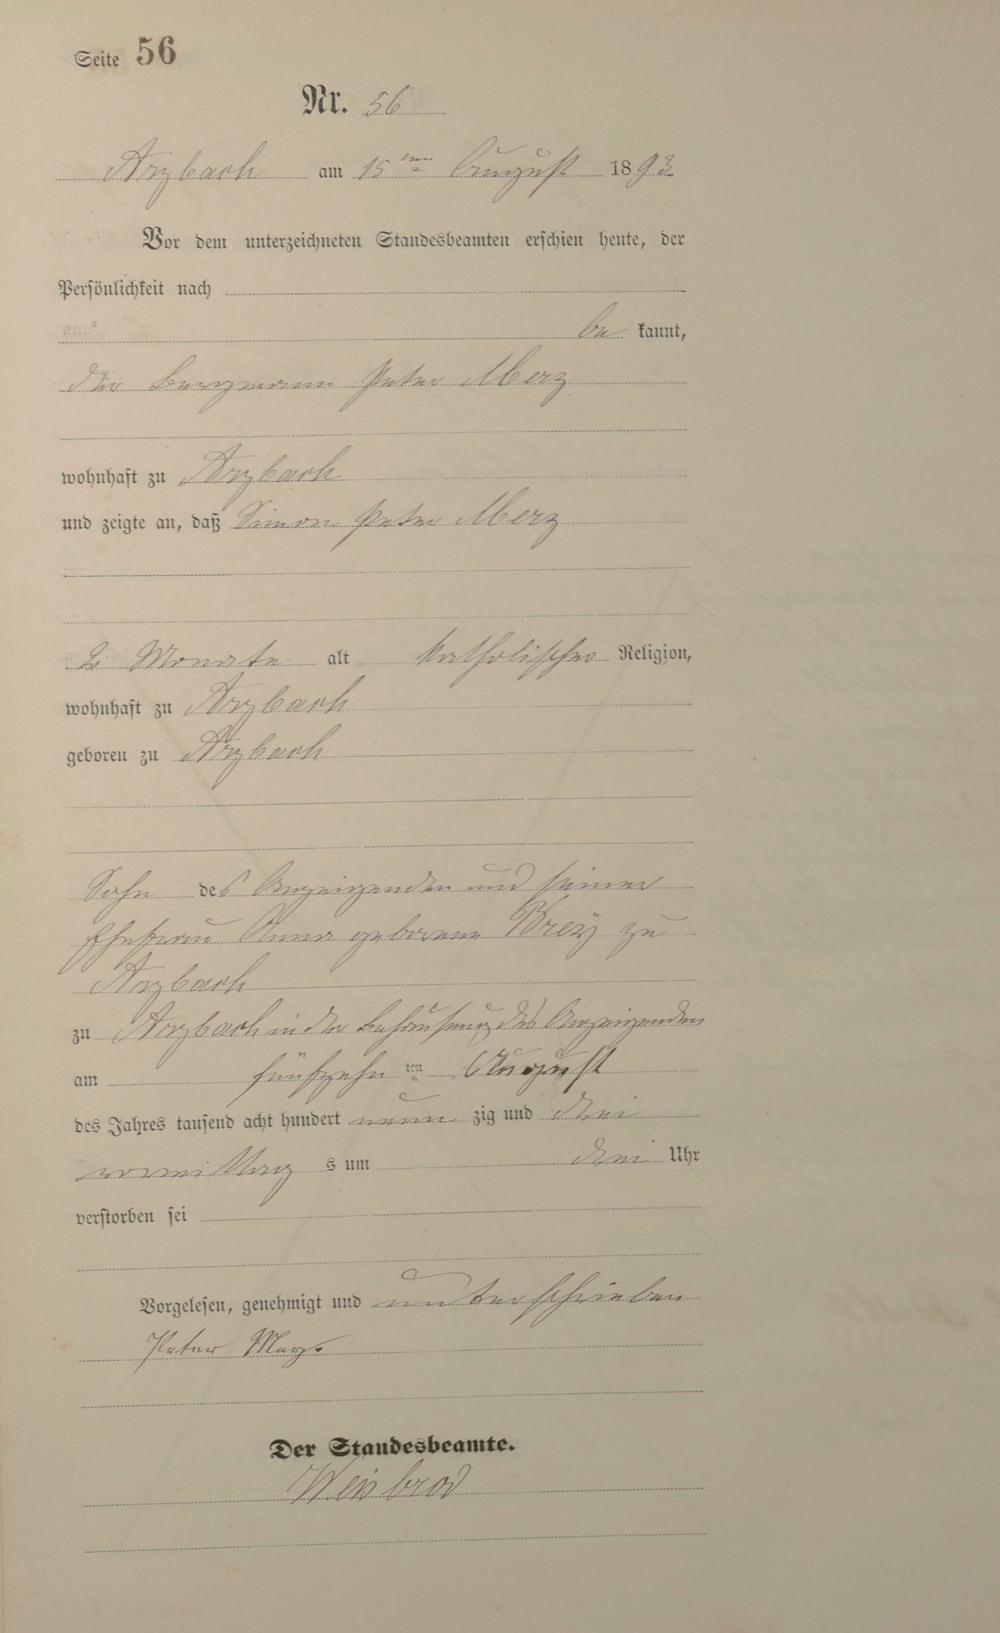 Seite 56
Nr. 56
Arzbach am 15ten August 1893
Vor dem unterzeichneten Standesbeamten erschien heute, der
Persönlichkeit nach
be kannt,
der Bergmann Peter Merz
wohnhaft zu Arzbach
und zeigte an, daß Simon Peter Merz
2 Monate alt katholischer Religion,
wohnhaft zu Arzbach
geboren zu Arzbach
Sohn des Anzeigenden und seiner
Ehefrau Anna geborene Breÿ zu
Arzbach
zu Arzbach in der Behausung des Anzeigenden
am fünfzehn ten August
des Jahres tausend acht hundert neun zig und drei
vormittag s um drei Uhr
verstorben sei
Vorgelesen, genehmigt und unterschrieben
Peter Merz
Der Standesbeamte.
Weisbrod